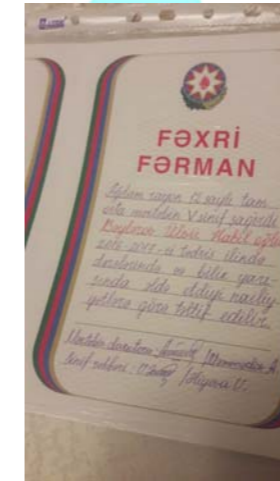 FƏXRİ
FƏRMAN
Ağdam rayon 12 saylı tam
orta məktəbin V sinif şagirdi
Kabil oğlu
tədris ilində
dərslərində və bilik yarı-
şında əldə etdiyi nailiy-
yətlərə görə təltif edilir.
Məktəbin direktoru: Məmmədov A.
Sinif rəhbəri: Əliyeva V.